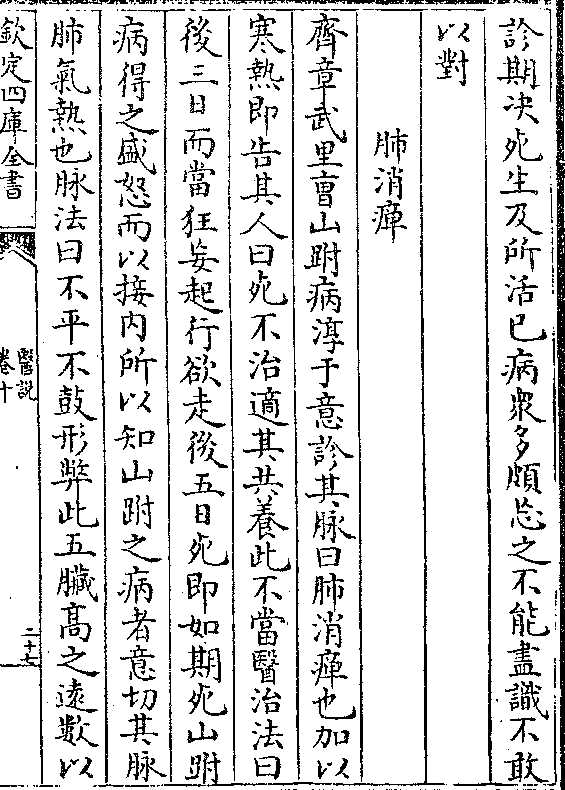 診期决死生及所活已病衆多頗忘之不能盡識不敢
以對
肺消癉
齊章武里曺山跗病淳于意診其脉曰肺消癉也加以
寒熱即告其人曰死不治適其共養此不當醫治法曰
後三日而當狂妄起行欲走後五日死即如期死山跗
病得之盛怒而以接内所以知山跗之病者意切其脉
肺氣熱也脉法曰不平不鼓形弊此五臓髙之逺數以
欽定四庫全書
醫説
卷十
二十七